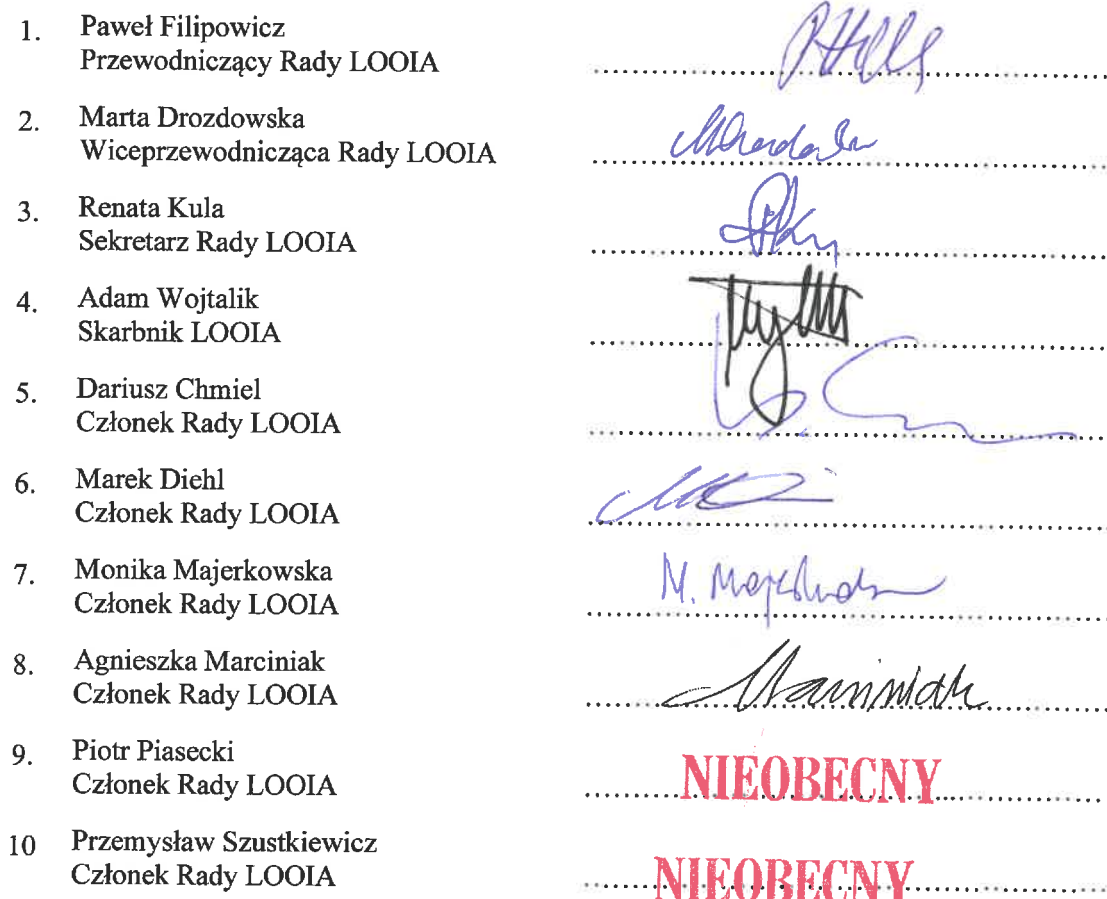 1. Paweł Filipowicz
Przewodniczący Rady LOOIA
2. Marta Drozdowska
Wiceprzewodnicząca Rady LOOIA
3. Renata Kula
Sekretarz Rady LOOIA
4. Adam Wojtalik
Skarbnik LOOIA
5. Dariusz Chmiel
Członek Rady LOOIA
6. Marek Diehl
Członek Rady LOOIA
7. Monika Majerkowska
Członek Rady LOOIA
M. Majerkowska
8. Agnieszka Marciniak
Członek Rady LOOIA
9. Piotr Piasecki
Członek Rady LOOIA
NIEOBECNY
10 Przemysław Szustkiewicz
Członek Rady LOOIA
NIEOBECNY